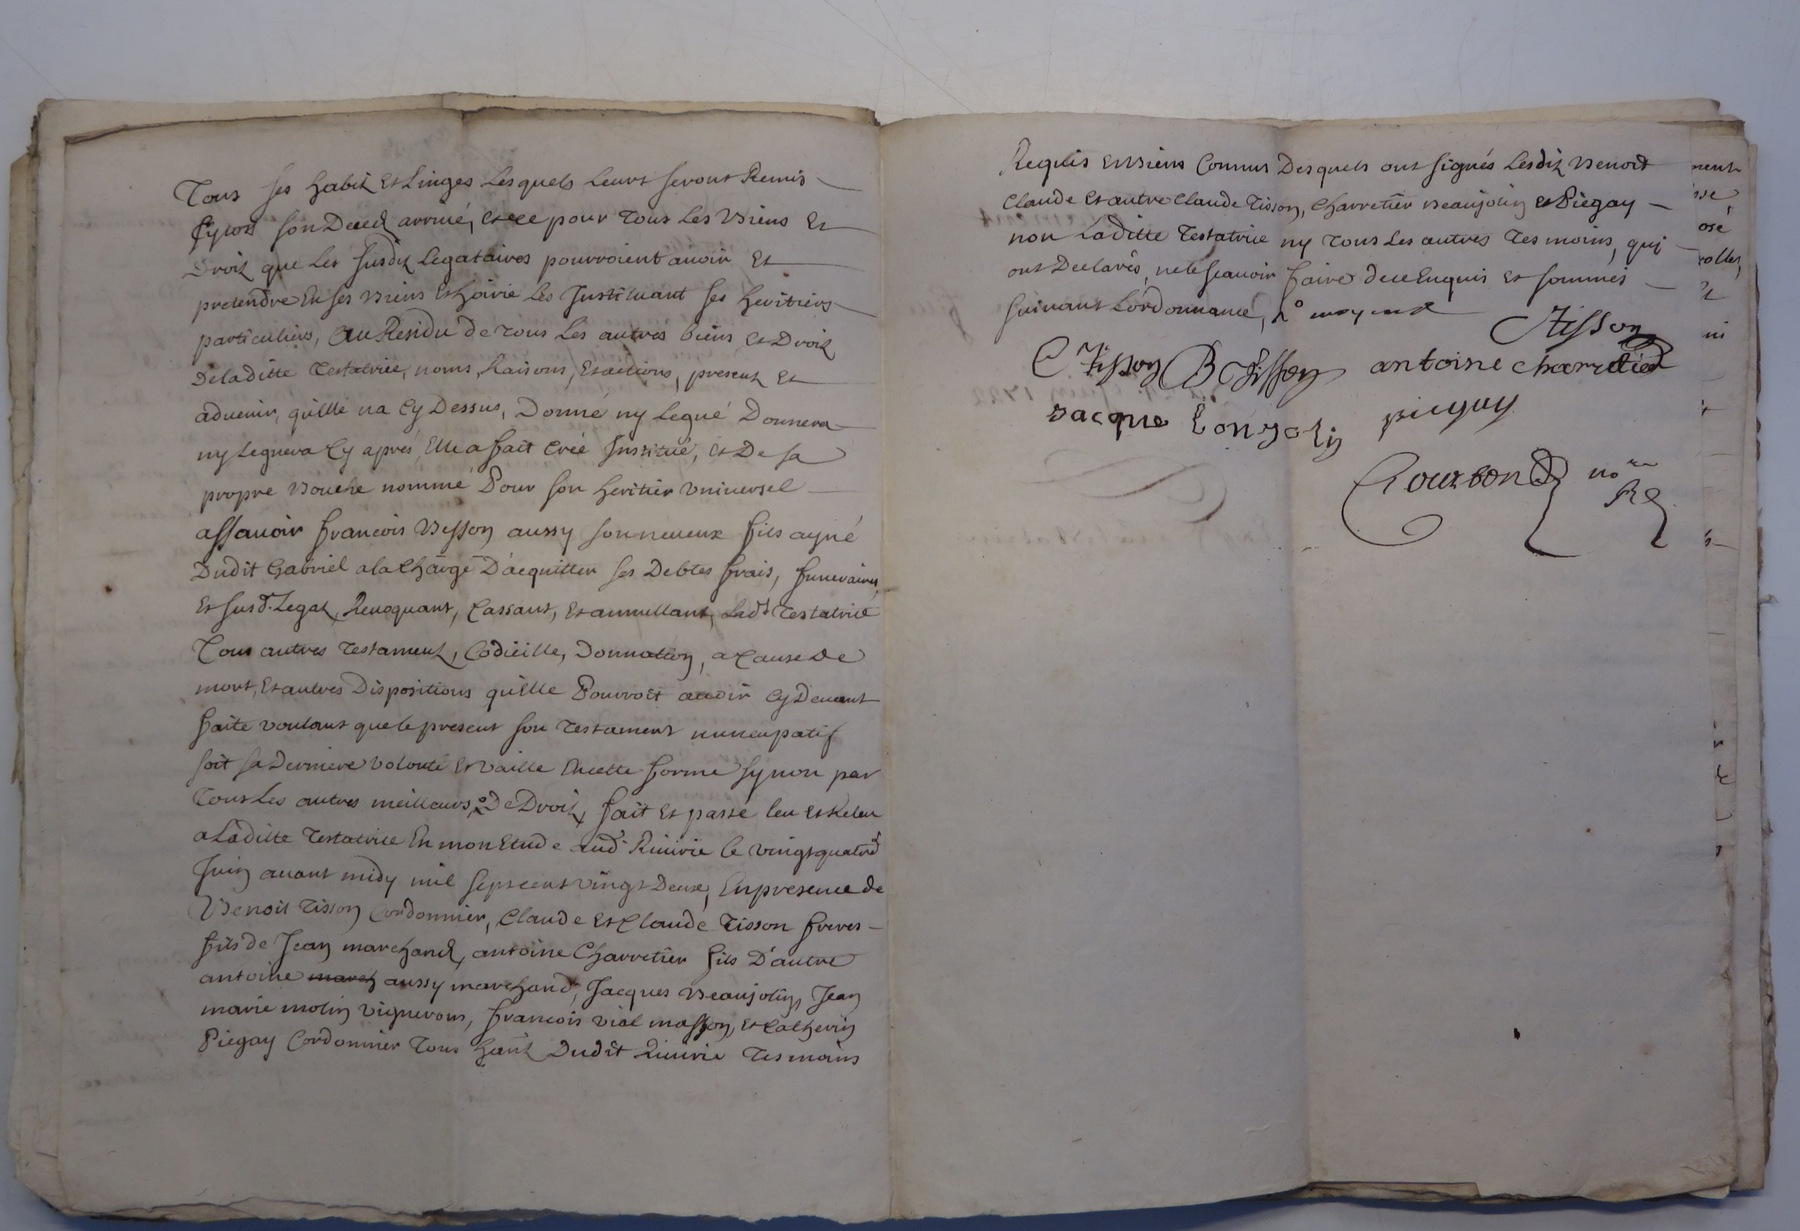 Tous ses habit et Linges Lesquels leurs seront Remis
sytost son Deced arrivé, et ce pour Tous Les Biens Et
Droit que Les susdit Legataires pourroient avoir Et
pretendre En ses Biens Et hoirie Les Instituant ses heritiers
particuliers, Au Residu de Tous Les autres biens et Droit
De laditte Testatrice, noms, Raisons, Et actions, present Et
advenir, qu'elle na Cy Dessus, Donné ny Legué Donnera
ny Leguera Cy aprés, Elle a fait Créé Institué, et De sa
propre Bouche nommé Pour son heritier Universel
assavoir francois Besson aussy son neveux fils ayné
Dudit Gabriel a la Charge D'acquitter ses Debtes frais, funeraires,
Et susd. Legat, Revoquant, Cassant, Et annullant, lad. Testatrice
Tous autres Testament, Codicille, Donnation, a Cause De
mort, Et autres Dispositions qu'Elle Pourroit avoir Cy Devant
faite voulant que le present son Testament nuncupatif
soit sa Derniere volonté Et vaille En cette forme synon par
Tous Les autres meilleurs De Droit, fait Et passé leu Et Releu
a Laditte Testatrice En mon Etude aud. Riverie le vingt quatre
Juin avant midy mil sept cent vingt Deux, En presence de
Benoit Tisson Cordonnier, Claude Et Claude Tisson freres
fils de Jean marchand, antoine Charretier fils D'autre
antoine march aussy marchand, Jacques Beaujolin, Jean
marie molin vignerons, francois vial masson, Et Catherin
Piegay Cordonnier Tous habit. Dudit Riverie Tesmoins
Requis Et Biens Connus Desquels ont signés Lesdit Benoit
Claude Et autre Claude Tisson, Charretier Beaujolin Et Piegay
non Laditte Testatrice ny Tous Les autres Tesmoins, quj
ont Declarés, ne le scavoir faire de ce Enquis Et sommés
suivant L'ordonnance, moyens
Tisson
C Tisson B Tisson antoine charretier
Jacque Bonjolin piegay
Courbon no.re
R.